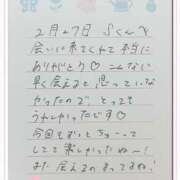 2月27日 Sくんへ
会いに来てくれて本当に
ありがとう♡ こんなに
早く会えると思っていな
かったので、とっても
うれしかったです♡
今回もずっとちゅーって
してて楽しかったね〜！
また会えるのまってるね！